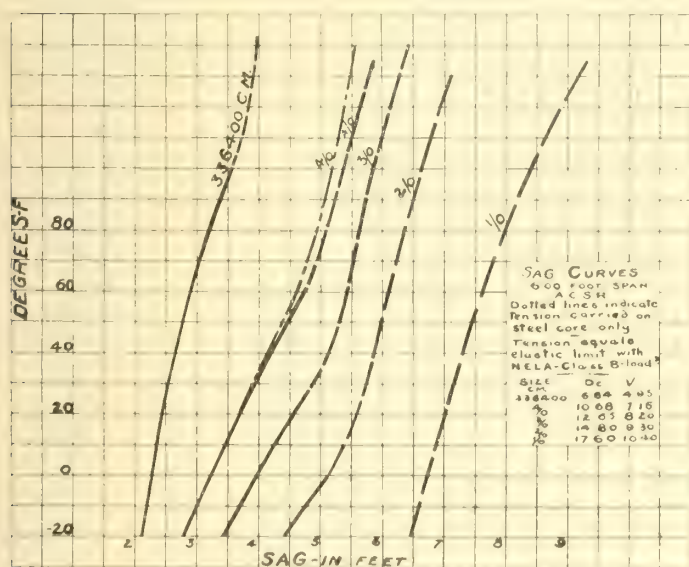 336400 C M.
4/0
3/0
2/0
1/0
DEGREES-F
80
60
40
20
0
-20
2 3 4 5 6 7 8 9
SAG-IN FEET
SAG CURVES
600 FOOT SPAN
A C S R
Dotted lines indicate
Tension carried on
steel core only
Tension equals
elastic limit with
NELA-Class B-load
SIZE DC V
CM
336400 6 84 4 95
4/0 10 68 7 16
12 65 8 20
14 80 9 30
17 60 10 40